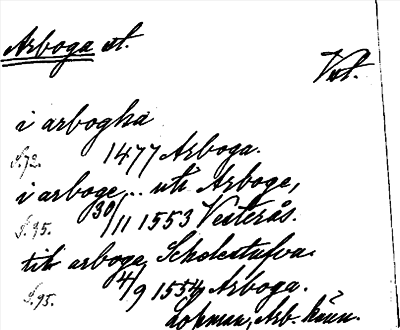 Arboga st.
Vst.
i arbogha
S. 72.
1477 Arboga.
i arboge .. uti Arboge,
S. 35.
30/11 1553 Vesterås.
till arboga Scholestufva.
S. 95.
4/9 1554 Arboga.
Lohman, Arb. känn.